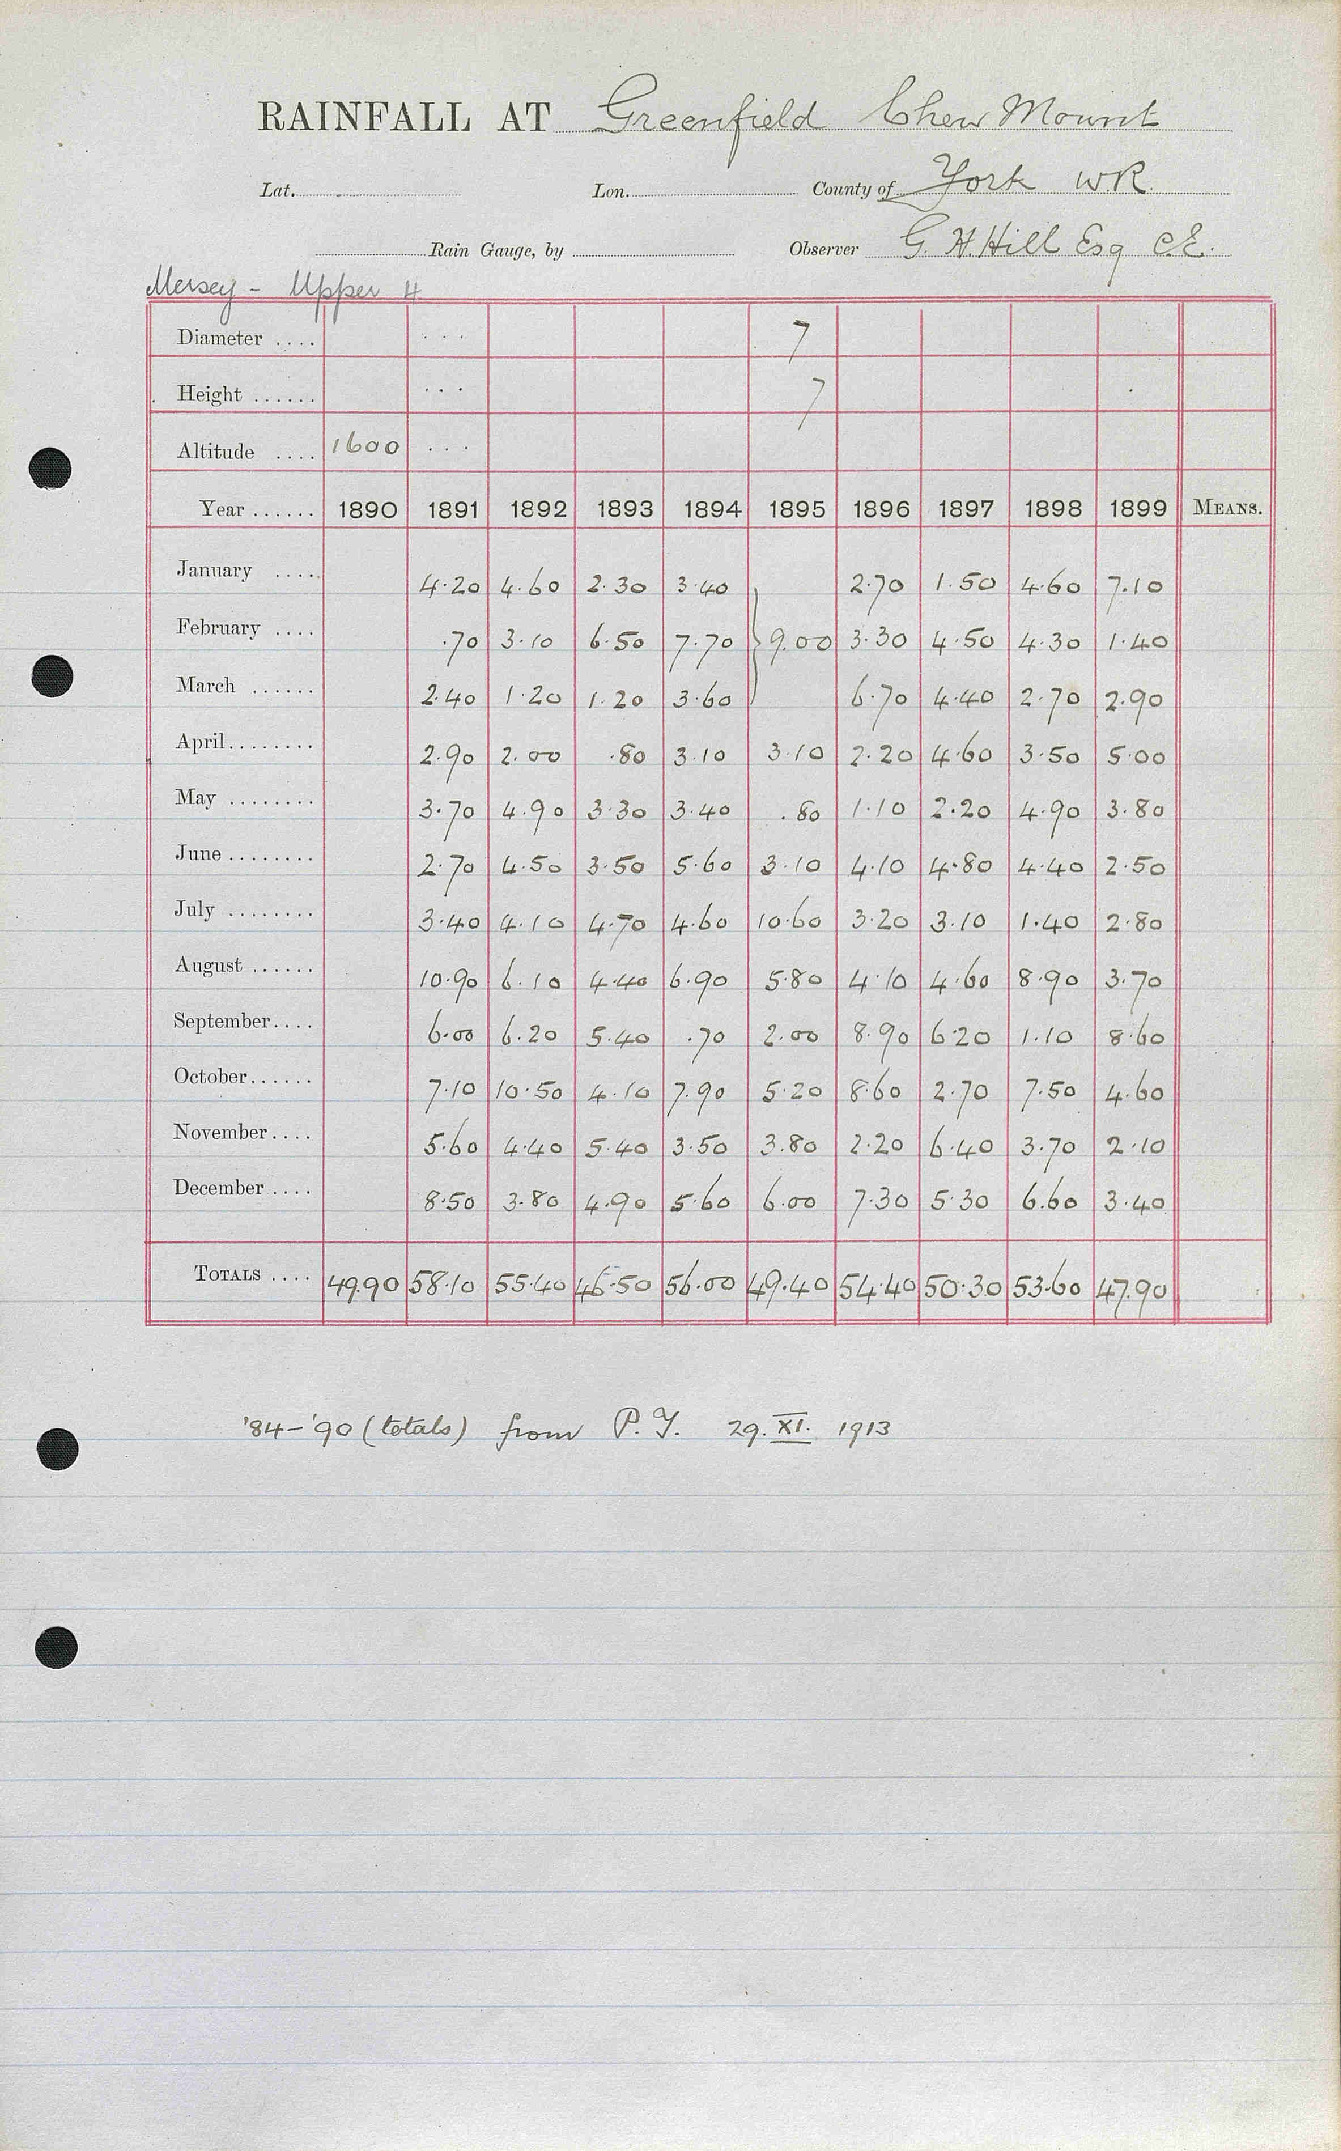 RAINFALL AT Greenfield Chew Mount
Lat. Lon. County of York WR.
Rain Gauge, by Observer G. H. Hill Esq C.E.
Mersey - Upper 4
Diameter .... ... 7
Height ...... ... 7
Altitude .... 1600 ...
Year ...... 1890 1891 1892 1893 1894 1895 1896 1897 1898 1899 MEANS.
January .... 4.20 4.60 2.30 3.40 2.70 1.50 4.60 7.10
February .... .70 3.10 6.50 7.70 } 9.00 3.30 4.50 4.30 1.40
March ...... 2.40 1.20 1.20 3.60 6.70 4.40 2.70 2.90
April........ 2.90 2.00 .80 3.10 3.10 2.20 4.60 3.50 5.00
May ........ 3.70 4.90 3.30 3.40 .80 1.10 2.20 4.90 3.80
June ........ 2.70 4.50 3.50 5.60 3.10 4.10 4.80 4.40 2.50
July ........ 3.40 4.10 4.70 4.60 10.60 3.20 3.10 1.40 2.80
August ...... 10.90 6.10 4.40 6.90 5.80 4.10 4.60 8.90 3.70
September.... 6.00 6.20 5.40 .70 2.00 8.90 6.20 1.10 8.60
October...... 7.10 10.50 4.10 7.90 5.20 8.60 2.70 7.50 4.60
November.... 5.60 4.40 5.40 3.50 3.80 2.20 6.40 3.70 2.10
December .... 8.50 3.80 4.90 5.60 6.00 7.30 5.30 6.60 3.40
TOTALS .... 49.90 58.10 55.40 46.50 56.00 49.40 54.40 50.30 53.60 47.90
'84-'90 (totals) from P.Y. 29.XI. 1913